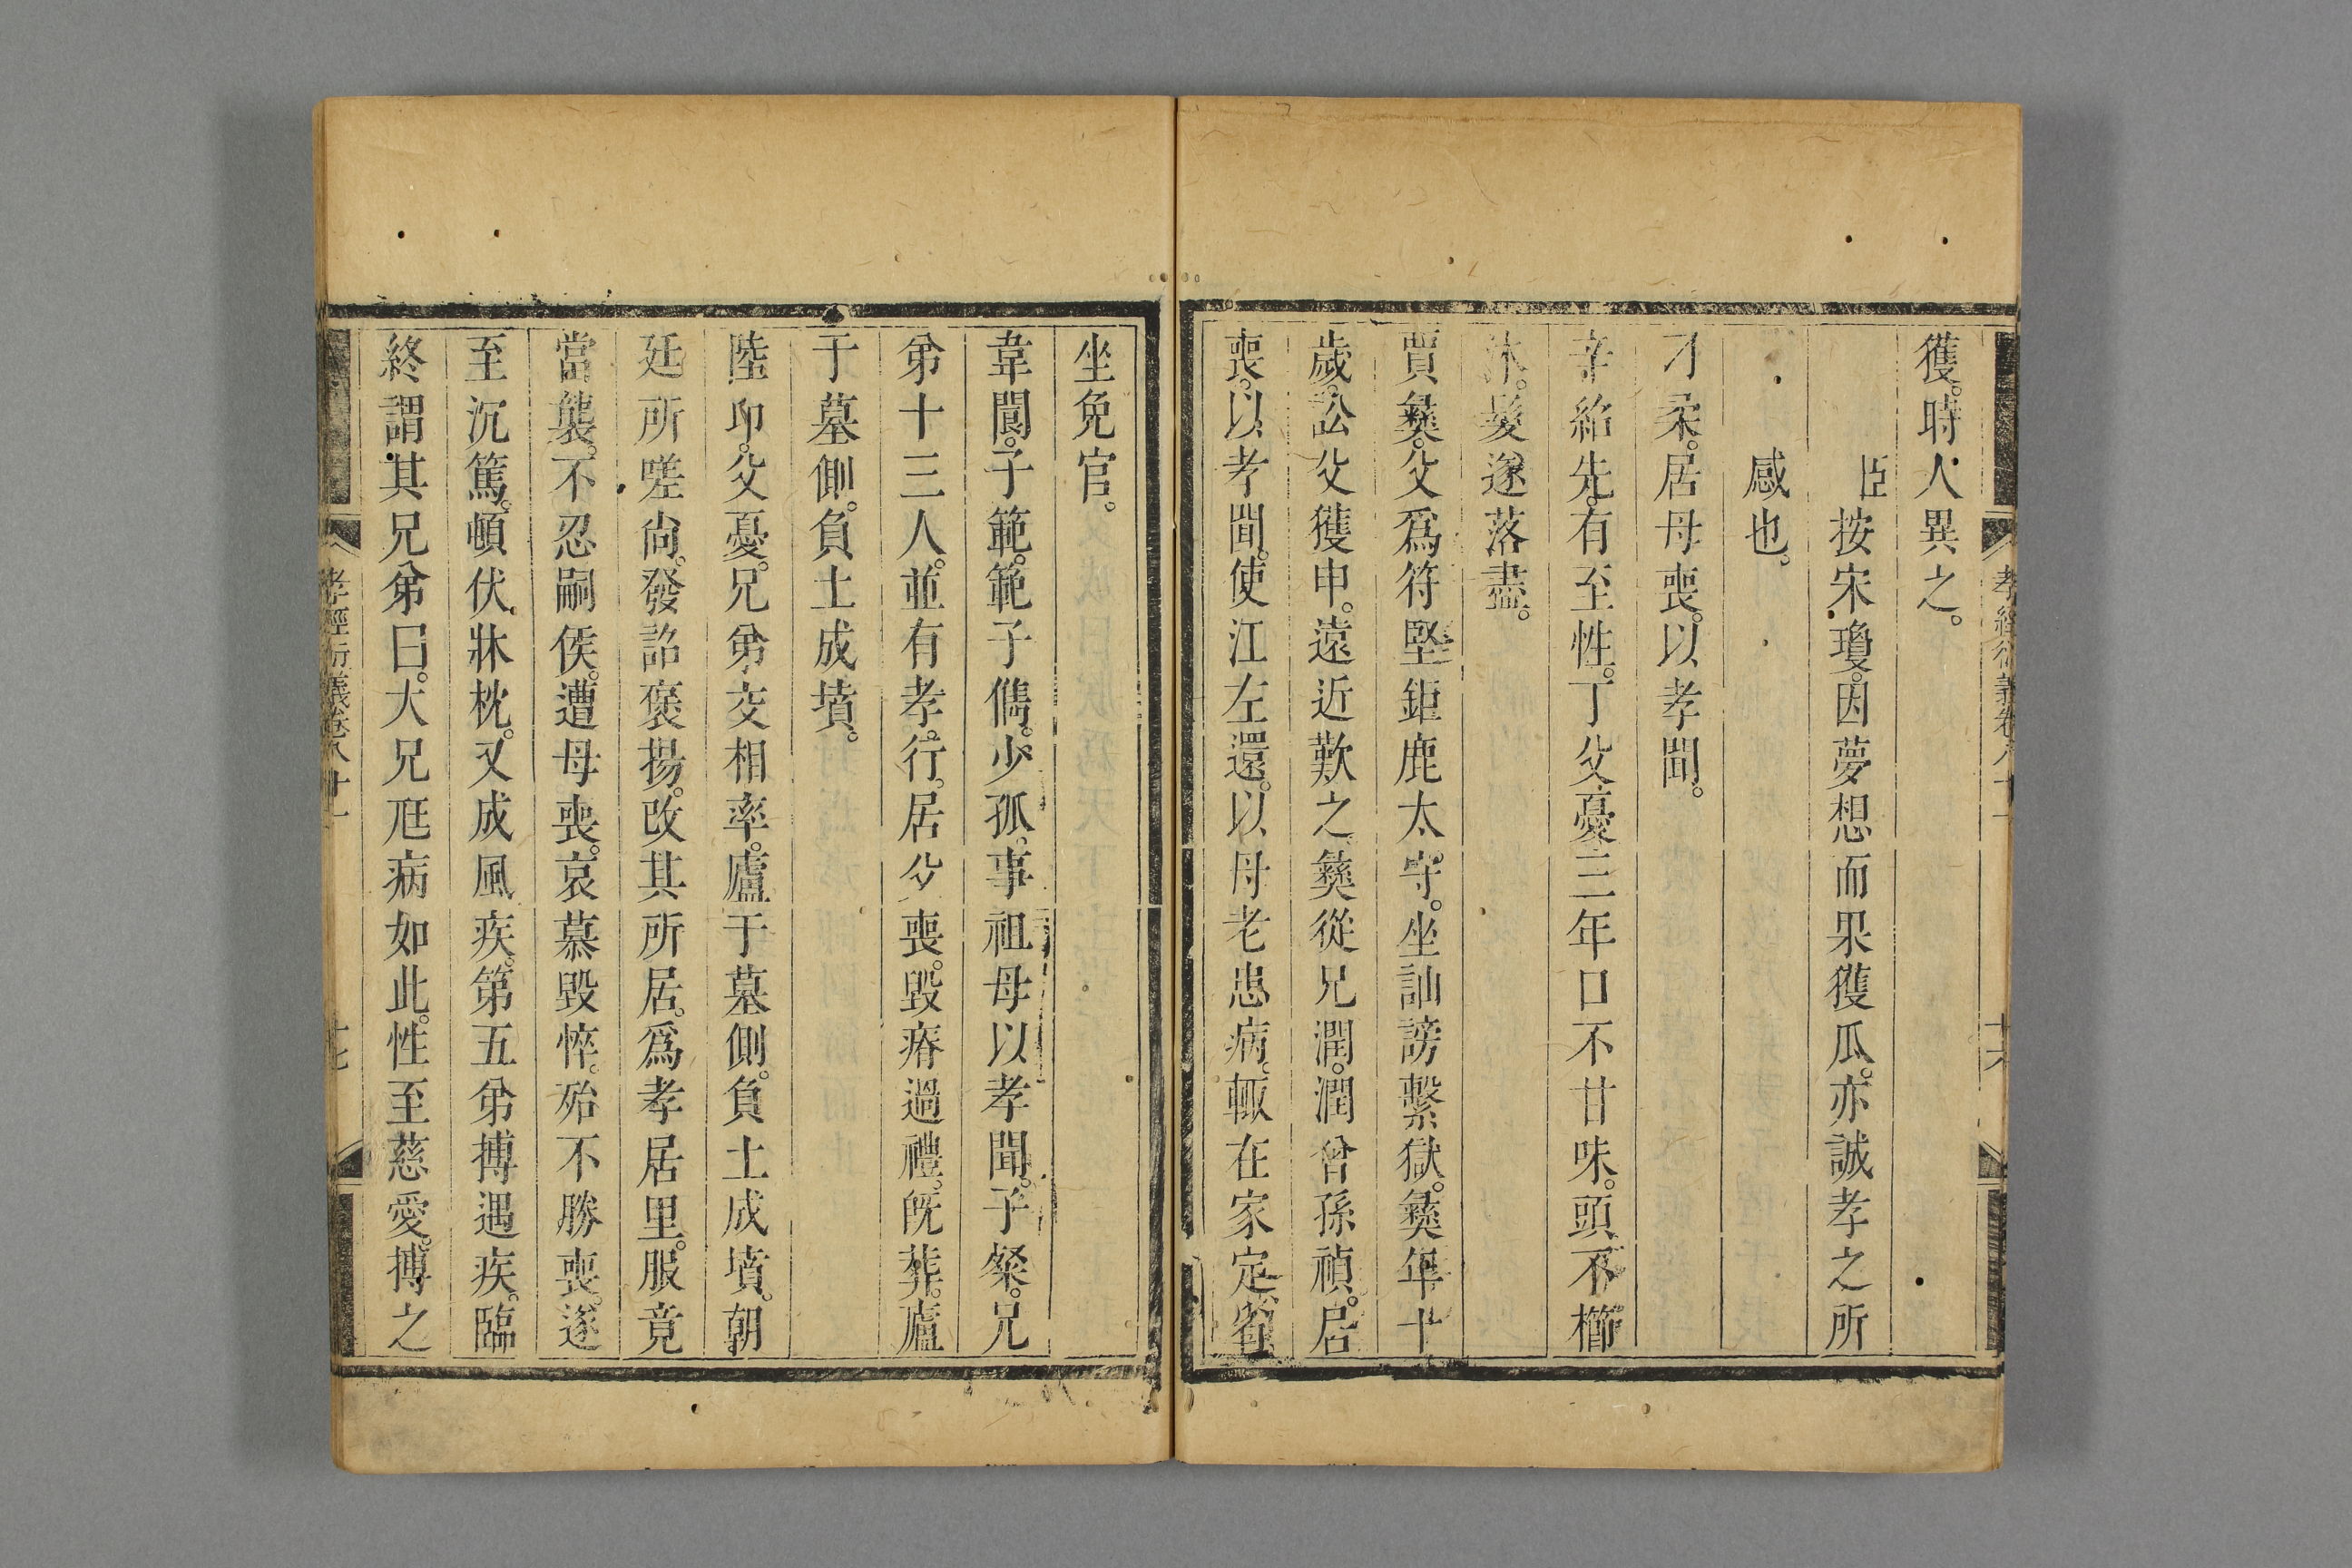 孝經衍義卷八十一
十六
獲。時人異之。
臣按宋瓊。因夢想而果獲瓜。亦誠孝之所
感也。
刁柔。居母喪。以孝聞。
辛紹先。有至性。丁父憂。三年口不甘味。頭不櫛
沐。髮遂落盡。
賈彝。父爲苻堅鉅鹿太守。坐訕謗繫獄。彝年十
歲。訟父獲申。遠近歎之。彝從兄潤。潤曾孫禎。居
喪。以孝聞。使江左還。以母老患病。輙在家定省
坐免官。
韋閬。子範。範子儁。少孤。事祖母以孝聞。子粲。兄
弟十三人。並有孝行。居父喪。毀瘠過禮。旣葬。廬
于墓側。負土成墳。
陸卬。父憂。兄弟交相率。廬于墓側。負土成墳。朝
廷所嗟尙。發詔褒揚。改其所居。爲孝居里。服竟
當襲。不忍嗣侯。遭母喪。哀慕毀悴。殆不勝喪。遂
至沉篤。頓伏牀枕。又成風疾。第五弟摶遇疾。臨
終謂其兄弟曰。大兄尫病如此。性至慈愛。摶之
孝經衍義卷八十一
十七